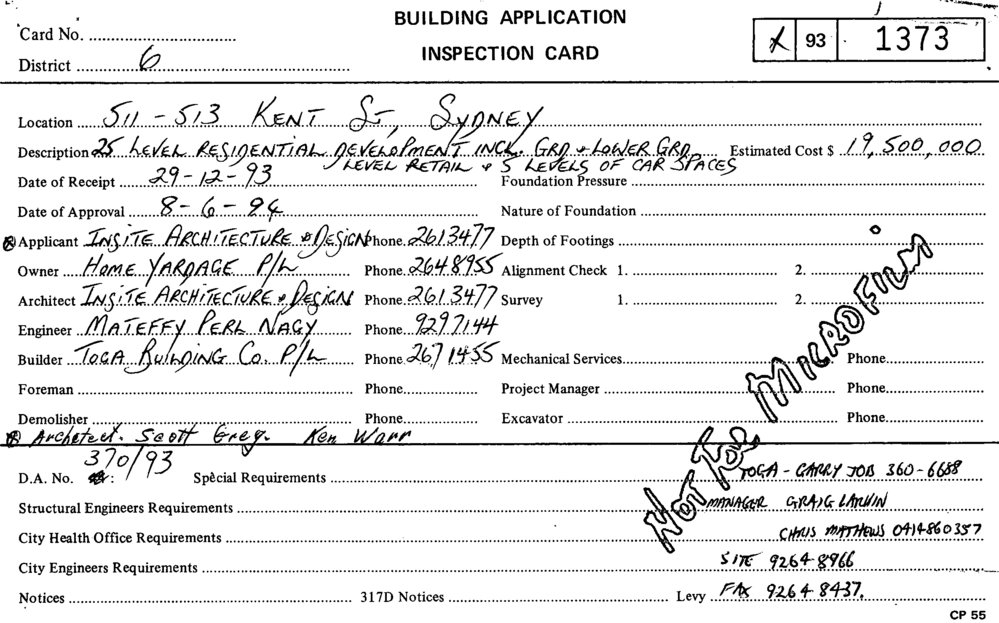 BUILDING APPLICATION
INSPECTION CARD
Card No.
X 93 1373
District 6
Location 511 - 513 KENT ST, SYDNEY
Description 25 LEVEL RESIDENTIAL DEVELOPMENT INCL. GRD & LOWER GRD Estimated Cost $ 19,500,000
LEVEL RETAIL & 5 LEVELS OF CAR SPACES
Date of Receipt 29-12-93 Foundation Pressure
Date of Approval 8-6-94 Nature of Foundation
Applicant INSITE ARCHITECTURE & DESIGN Phone 2613477 Depth of Footings
Owner HOME YARDAGE P/L Phone 2648955 Alignment Check 1. 2.
Architect INSITE ARCHITECTURE & DESIGN Phone 2613477 Survey 1. 2.
Engineer MATEFFY PERL NAGY Phone 9297144
Builder TOGA BUILDING CO. P/L Phone 2671455 Mechanical Services Phone
Foreman Phone Project Manager Phone
Demolisher Phone Excavator Phone
Architect. Scott Greg. Ken Warr
NOT TOO MICROFILM
D.A. No. 370/93 Special Requirements TOGA - GARRY JOB 360-6688
Structural Engineers Requirements MANAGER GRAIG LARVIN
City Health Office Requirements CHRIS MATTHEWS 0414860357
City Engineers Requirements SITE 9264 8966
Notices 317D Notices Levy FAX 9264 8437.
CP 55